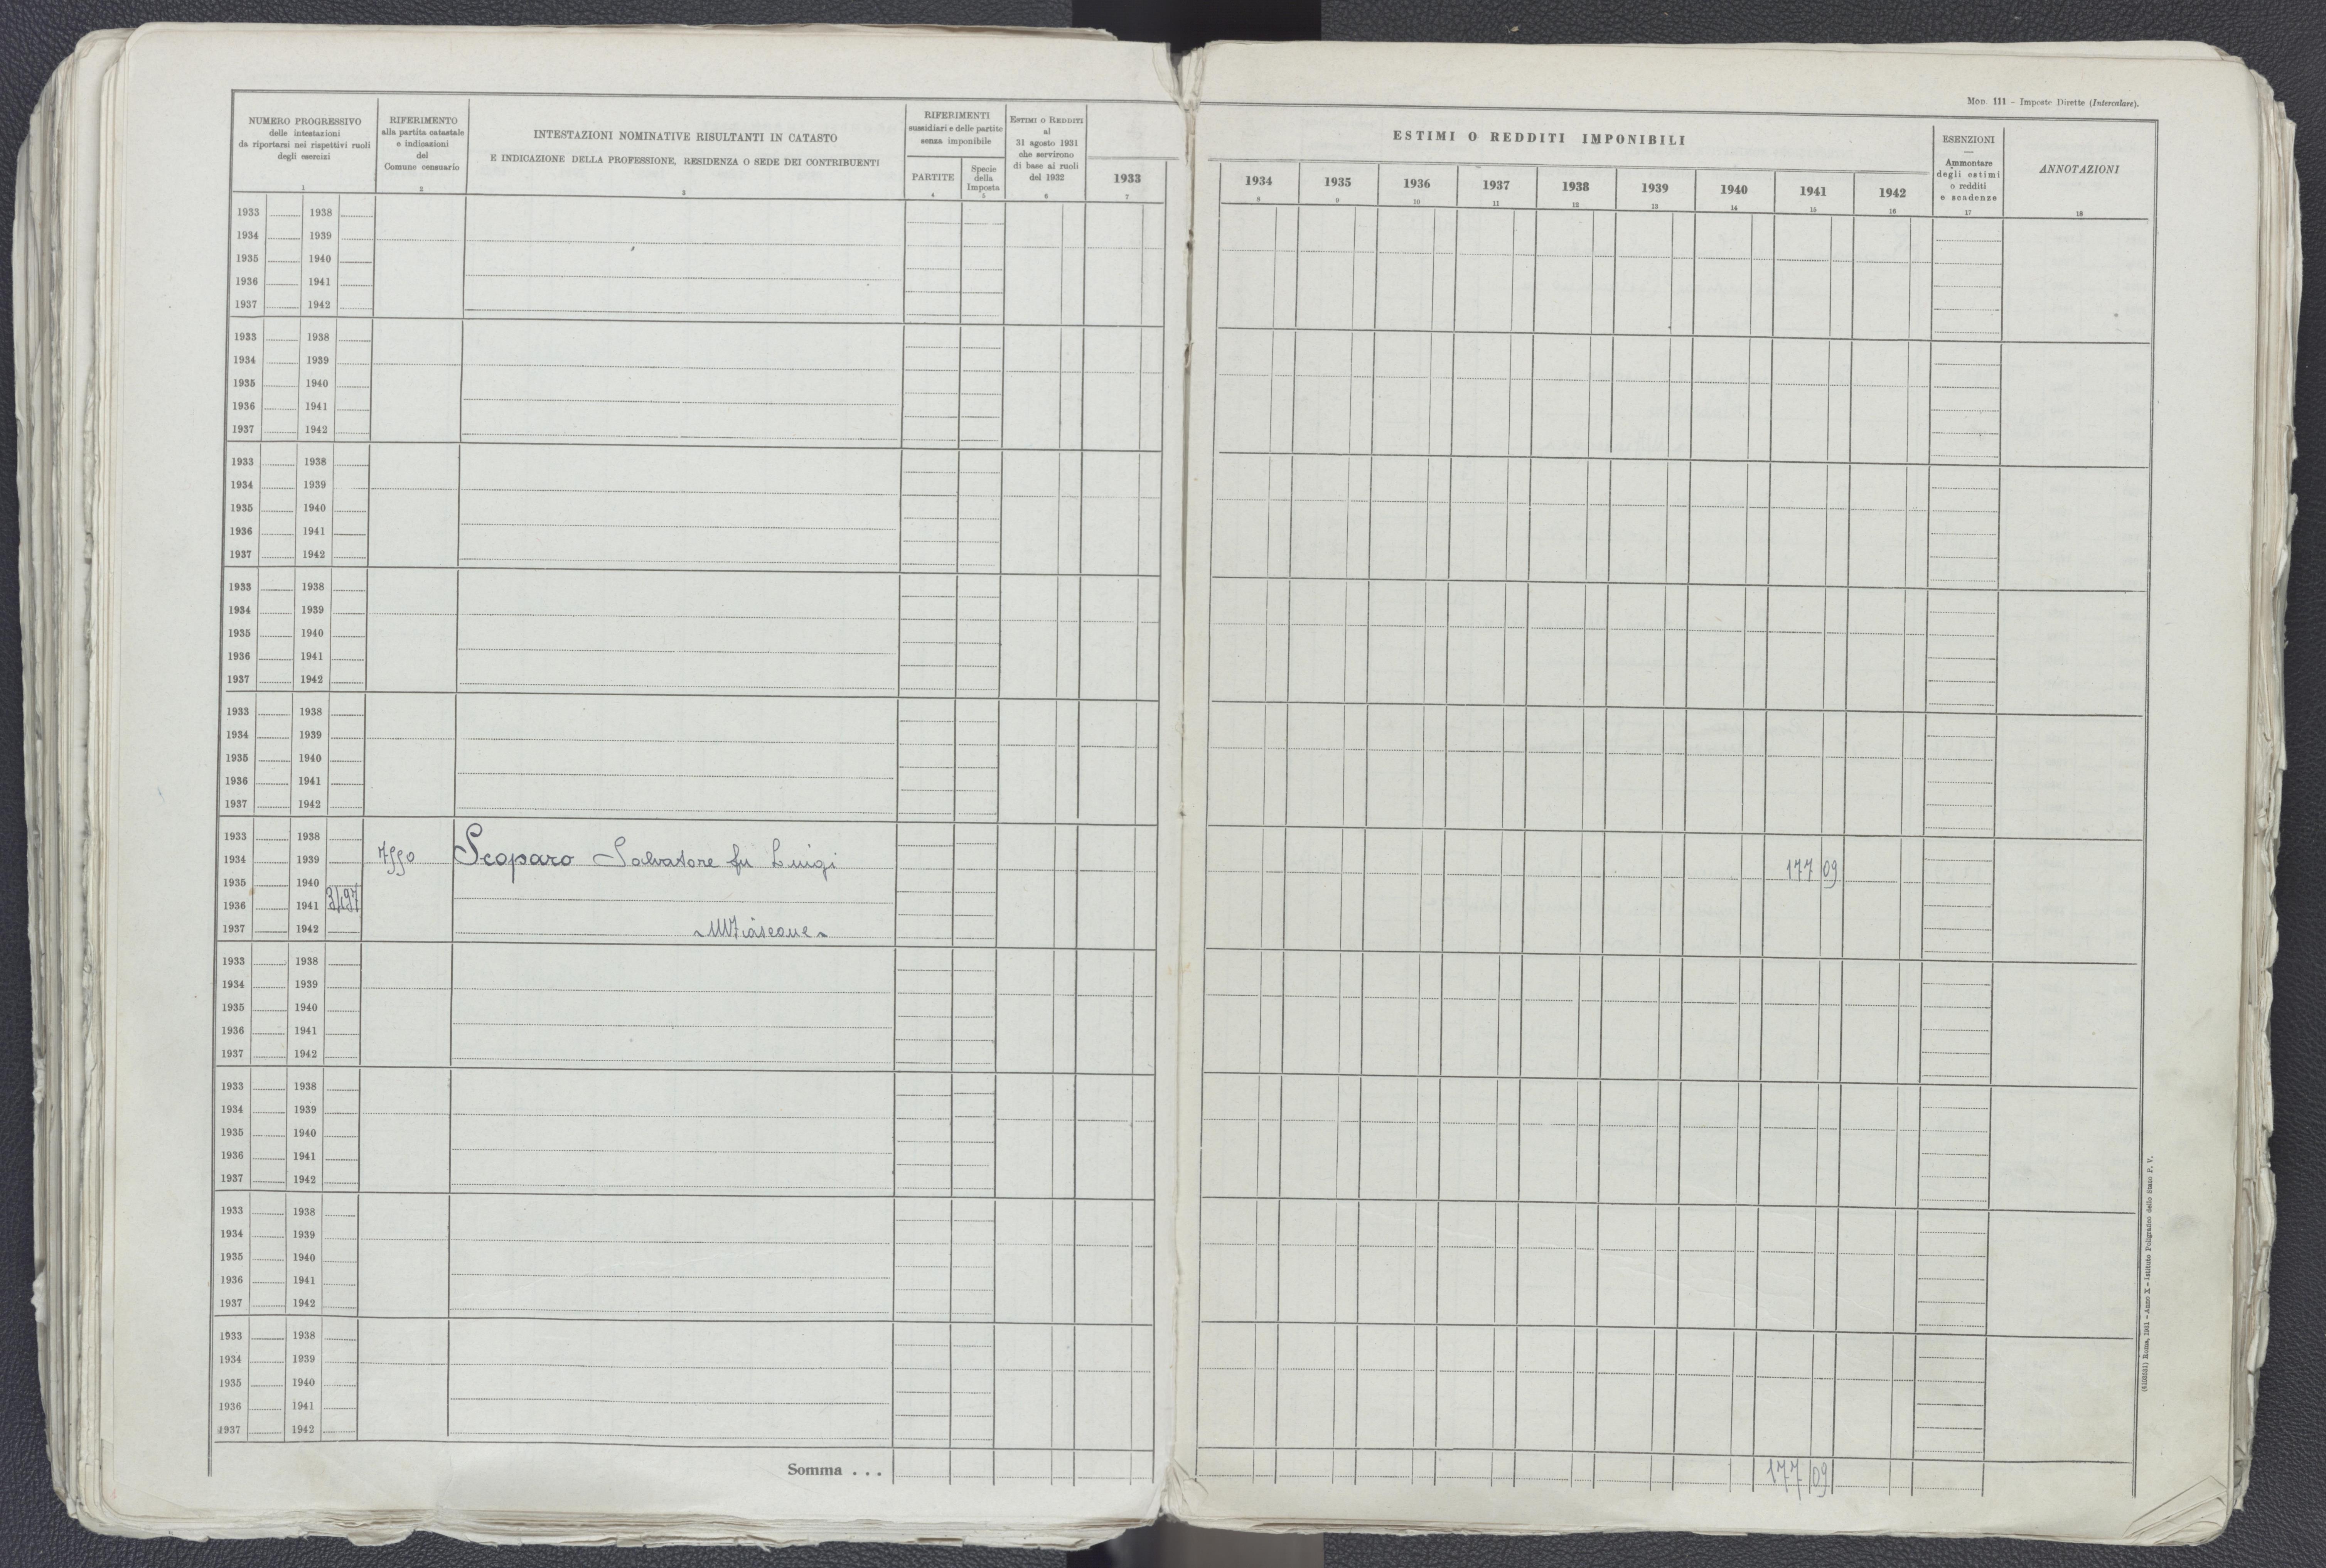 Mod. 111 – Imposte Dirette (Intercalare).
NUMERO PROGRESSIVO
delle intestazioni
da riportarsi nei rispettivi ruoli
degli esercizi
1
RIFERIMENTO
alla partita catastale
e indicazioni
del
Comune censuario
2
INTESTAZIONI NOMINATIVE RISULTANTI IN CATASTO
E INDICAZIONE DELLA PROFESSIONE, RESIDENZA O SEDE DEI CONTRIBUENTI
3
RIFERIMENTI
sussidiari e delle partite
senza imponibile
PARTITE
4
Specie
della
Imposta
5
ESTIMI O REDDITI
al
31 agosto 1931
che servirono
di base ai ruoli
del 1932
6
1933
7
ESTIMI O REDDITI IMPONIBILI
1934 1935 1936 1937 1938 1939 1940 1941 1942
8 9 10 11 12 13 14 15 16
ESENZIONI
—
Ammontare
degli estimi
o redditi
e scadenze
17
ANNOTAZIONI
18
1933 1938
1934 1939
1935 1940
1936 1941
1937 1942
1933 1938
1934 1939
1935 1940
1936 1941
1937 1942
1933 1938
1934 1939
1935 1940
1936 1941
1937 1942
1933 1938
1934 1939
1935 1940
1936 1941
1937 1942
1933 1938
1934 1939
1935 1940
1936 1941
1937 1942
1933 1938
1934 1939 Scoparo Salvatore fu Luigi 177 09
1935 1940
1936 1941
1937 1942
1933 1938
1934 1939
1935 1940
1936 1941
1937 1942
1933 1938
1934 1939
1935 1940
1936 1941
1937 1942
1933 1938
1934 1939
1935 1940
1936 1941
1937 1942
1933 1938
1934 1939
1935 1940
1936 1941
1937 1942
Somma . . . 177 09
Roma, 1931 – Anno X – Istituto Poligrafico dello Stato P. V.